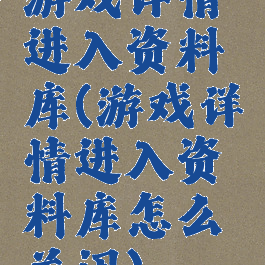 游戏详情
进入资料
库(游戏详
情进入资
料库怎么